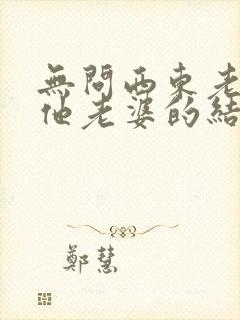 無問西東老
他老婆的結
鄭慧